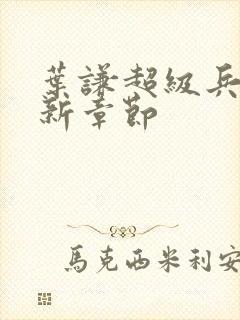 葉謙超級兵
新章節
馬克西米利安